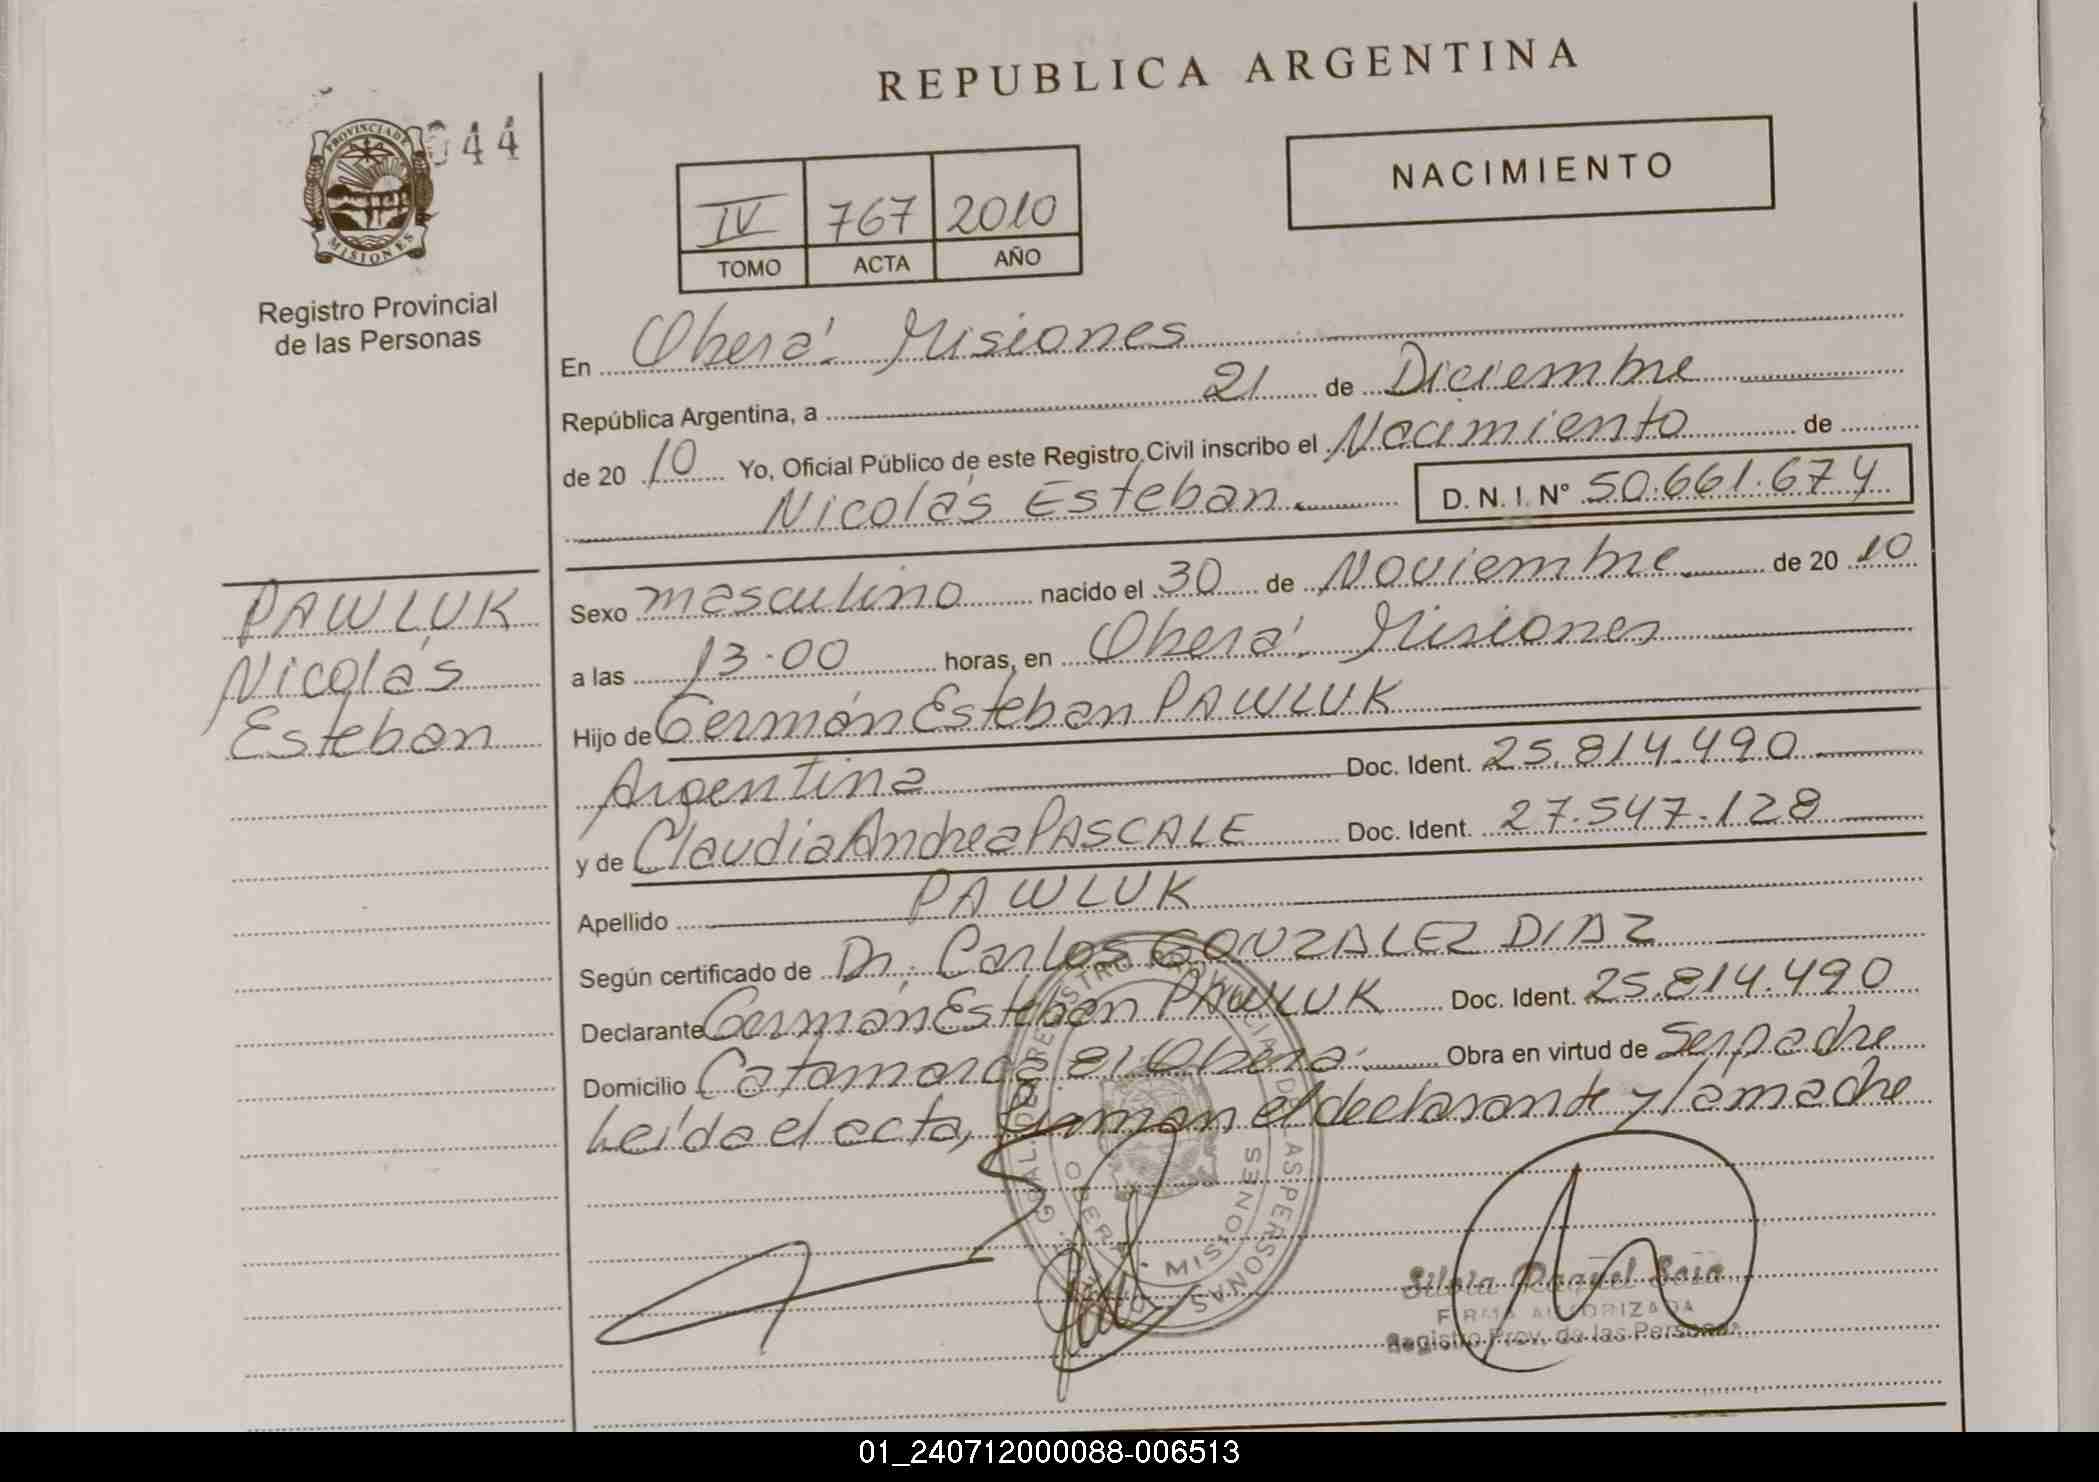 REPUBLICA ARGENTINA
PROVINCIA DE
MISIONES
044
Registro Provincial
de las Personas
NACIMIENTO
IV 767 2010
TOMO ACTA AÑO
En Oberá. Misiones
República Argentina, a 21 de Diciembre
de 20 10 Yo, Oficial Público de este Registro Civil inscribo el Nacimiento de
Nicolás Esteban. D. N. I. Nº 50.661.674
PAWLUK
Nicolás
Esteban
Sexo masculino nacido el 30 de Noviembre de 20 10
a las 13.00 horas, en Oberá. Misiones
Hijo de Germán Esteban PAWLUK
Argentina Doc. Ident. 25.814.490
y de Claudia Andrea PASCALE Doc. Ident. 27.547.128
Apellido PAWLUK
Según certificado de Dr. Carlos GONZALEZ DIAZ
Declarante Germán Esteban PAWLUK Doc. Ident. 25.814.490
Domicilio Catamarca 81. Oberá. Obra en virtud de Ser padre
Leída el acta, firman el declarante y la madre
OBERA • MISIONES
Silvia Raquel
FIRMA AUTORIZADA
Registro Prov. de las Personas
01_240712000088-006513